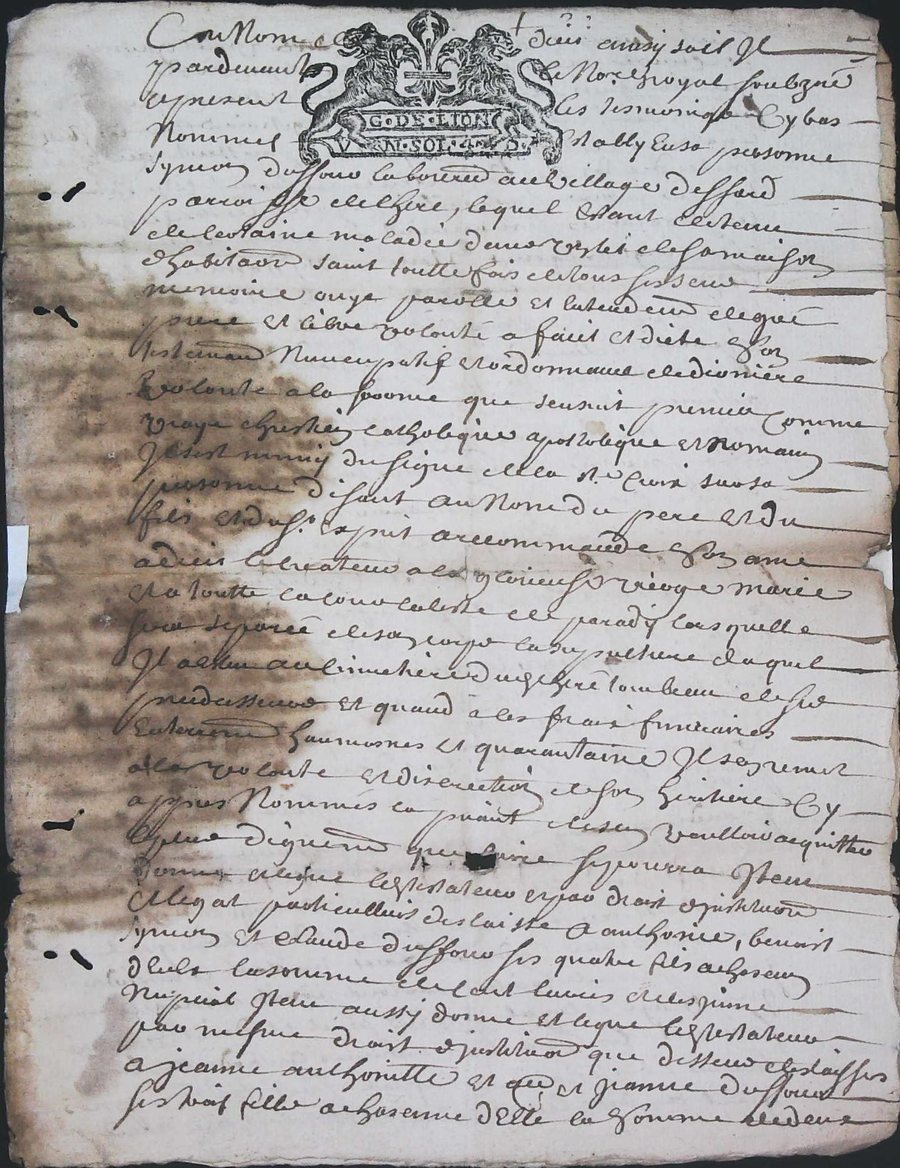 Au Nom de dieu ainsy soit Il
pardevant le No.re Royal soubzné
et present les tesmoings Cy bas
Nommes estably En sa personne
Symon dufour laboureur au Village
parroisse de lequel Estant detenu
de certaine maladie dans Un lict de sa maison
d'habitaon saint touttefois de tous ses sens
memoire ouye parolle et Entendem.t de gré
pure et libre volonté a faict et dicté Son
testament Nuncupatif et ordonnance de derniere
Volonte a la forme que sensuit premier Comme
vraye chrestien catholique apostolique et Romain
Il sest muny du signe de la s.te Croix sur sa
personne disant au Nom du pere et du
fils et du s.t Esprit a recommandé Son ame
a dieu le createur a la glorieuse vierge marie
et a toutte la cour celeste de paradis lors quelle
sera separée de son corps la sepulture duquel
Il a esleu au Cimetiere dud tombeau de ses
predecesseurs et quand a les frais funeraires
Enterrem.t haumosnes et quarantaine Il sen remet
a la volonte et discretion de son heritiere Cy
appres Nommés la priant de sen voulloir acquitter
le plus dignem.t que faire se pourra Item
donne et legue led testateur et par droit d'institution
et legat particulliers delaisse a anthoine, benoist
Symon et Claude dufour ses quatre fils a chascun
d'eulx la somme de livres
Item aussy donne et legue led testateur
par mesme droit d'institution que dessus delaisse
a jeanne anthoinette et et jeanne dufour
ses trois filles a chascune d'Elle la somme de deux
G·DE·LION
VN·SOL·4·D·